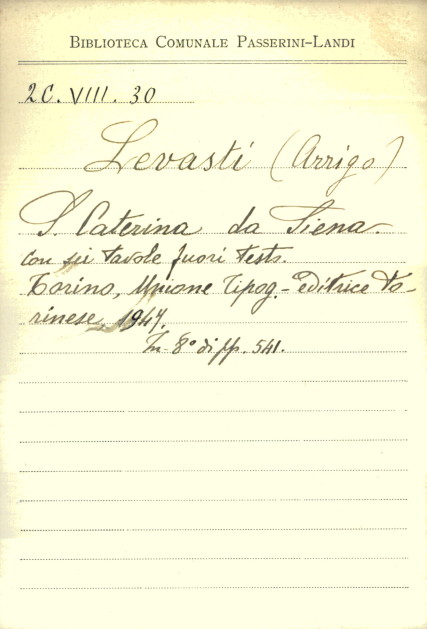 BIBLIOTECA COMUNALE PASSERINI-LANDI
2C. VIII. 30
Levasti (Arrigo)
S. Caterina da Siena.
con sei tavole fuori testo.
Torino, Unione Tipog.-editrice to-
rinese, 1947.
In-8° di pp. 541.